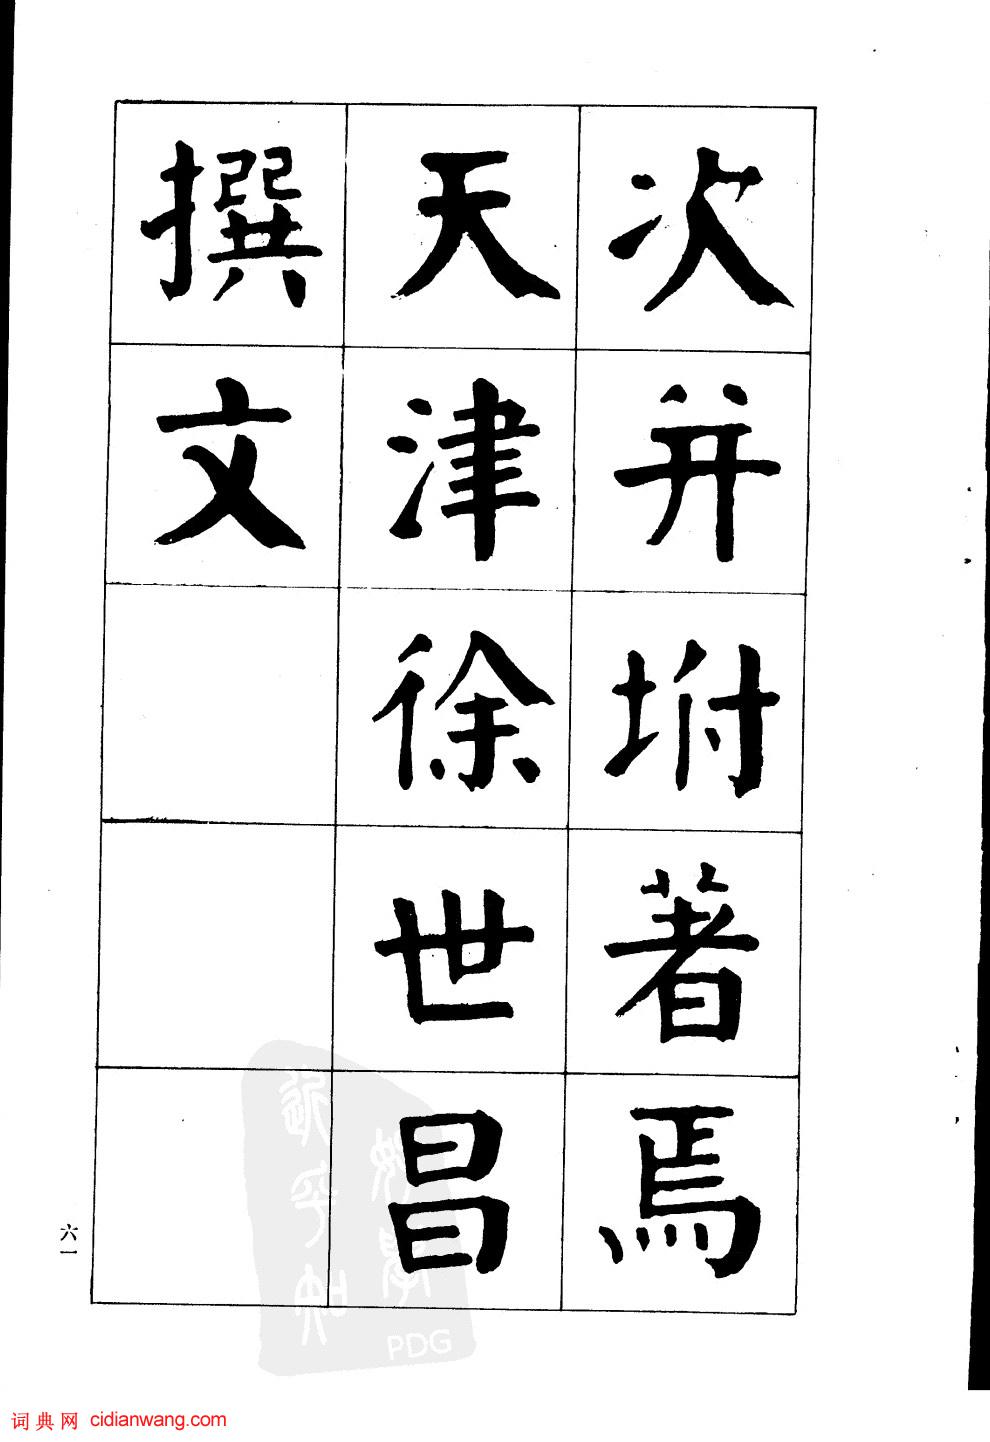 次并坿著焉
天津徐世昌
撰文
六一
PDG
词典网 cidianwang.com